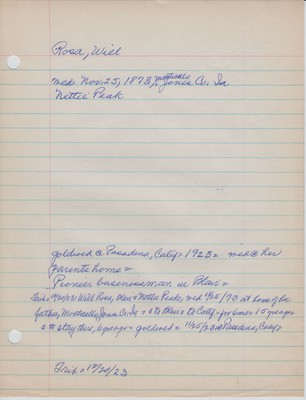 Rosa, Will
med= Nov. 25, 1873, Monticello Jones Co. Ia
Nettie Peak
goldwed @ Pasadena, Calif= 1923= med @ her
parents home=
Pioneer businessman in
Trib= 12/20/23: Will Rosa, & Nettie Peake, med 11/25/73 at home of her
father, Monticello, Jones Co. Ia = to Calif = 15 yrs ago=
goldwed = 11/25/23 @ Pasadena, Calif=
Trib= 12/20/23